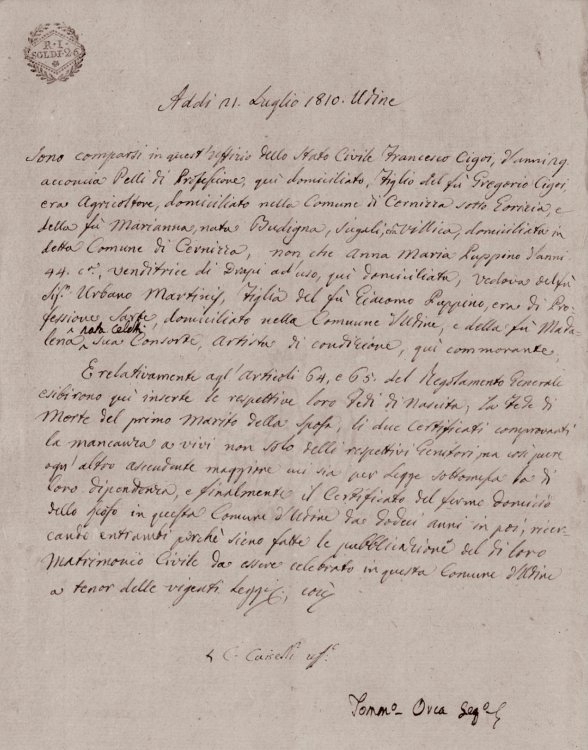 R · I ·
SGLDI · 26
Addi 21. Luglio 1810. Udine
Sono comparsi in quest'Uffizio dello Stato Civile Francesco Cigoi, d'anni 29.
acconcia Pelli di Professione, qui domiciliato, Figlio del fù Gregorio Cigoi,
era Agricoltore, domiciliato nella Comune di Cernizza sotto Gorizia, e
della fù Marianna, nata Budigna, Villica, domiciliata in
detta Comune di Cernizza, non che Anna Maria Puppino d'anni
44. cª, venditrice di drapi ad uso, qui domiciliata, vedova del fù
Sigr. Urbano Martinis, Figlia del fù Giacomo Puppino, era di Pro-
fessione Sarte, domiciliato nella Commune d'Udine, e della fù Mada-
nata Celotti
lena sua Consorte, Artista di condizione, qui commorante.
E relativamente agl'Articoli 64, e 65. del Regolamento Generale
esibirono qui inserte le respettive loro Fedi di Nascita, La Fede di
Morte del primo Marito della Sposa, li due Certificati comprovanti
la mancanza a vivi non solo delli respettivi Genitori, ma così pure
ogn'altro ascendente maggiore cui sia per Legge sottomessa la di
loro dipendenza, e finalmente il Certificato del fermo domicilio
dello sposo in questa Comune d'Udine da dodeci anni in poi, ricer-
cando entrambi perchè sieno fatte le pubblicazioni del di loro
Matrimonio Civile da essere celebrato in questa Comune d'Udine
a tenor delle vigenti Leggi, così
C. Caiselli uff.e
Tommo Orca Segro